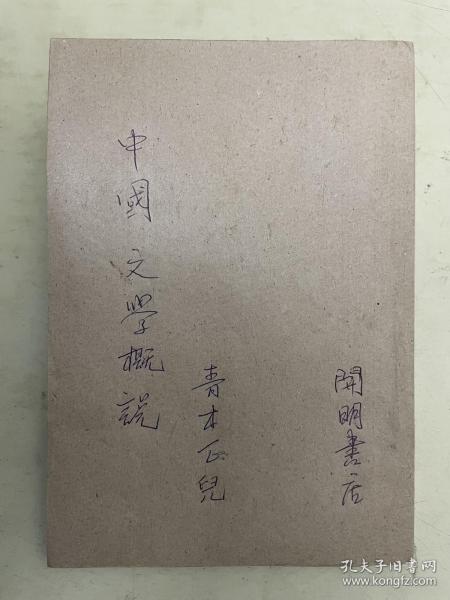 中國文學概說
青木正兒
開明書店
孔夫子旧书网
www.kongfz.com